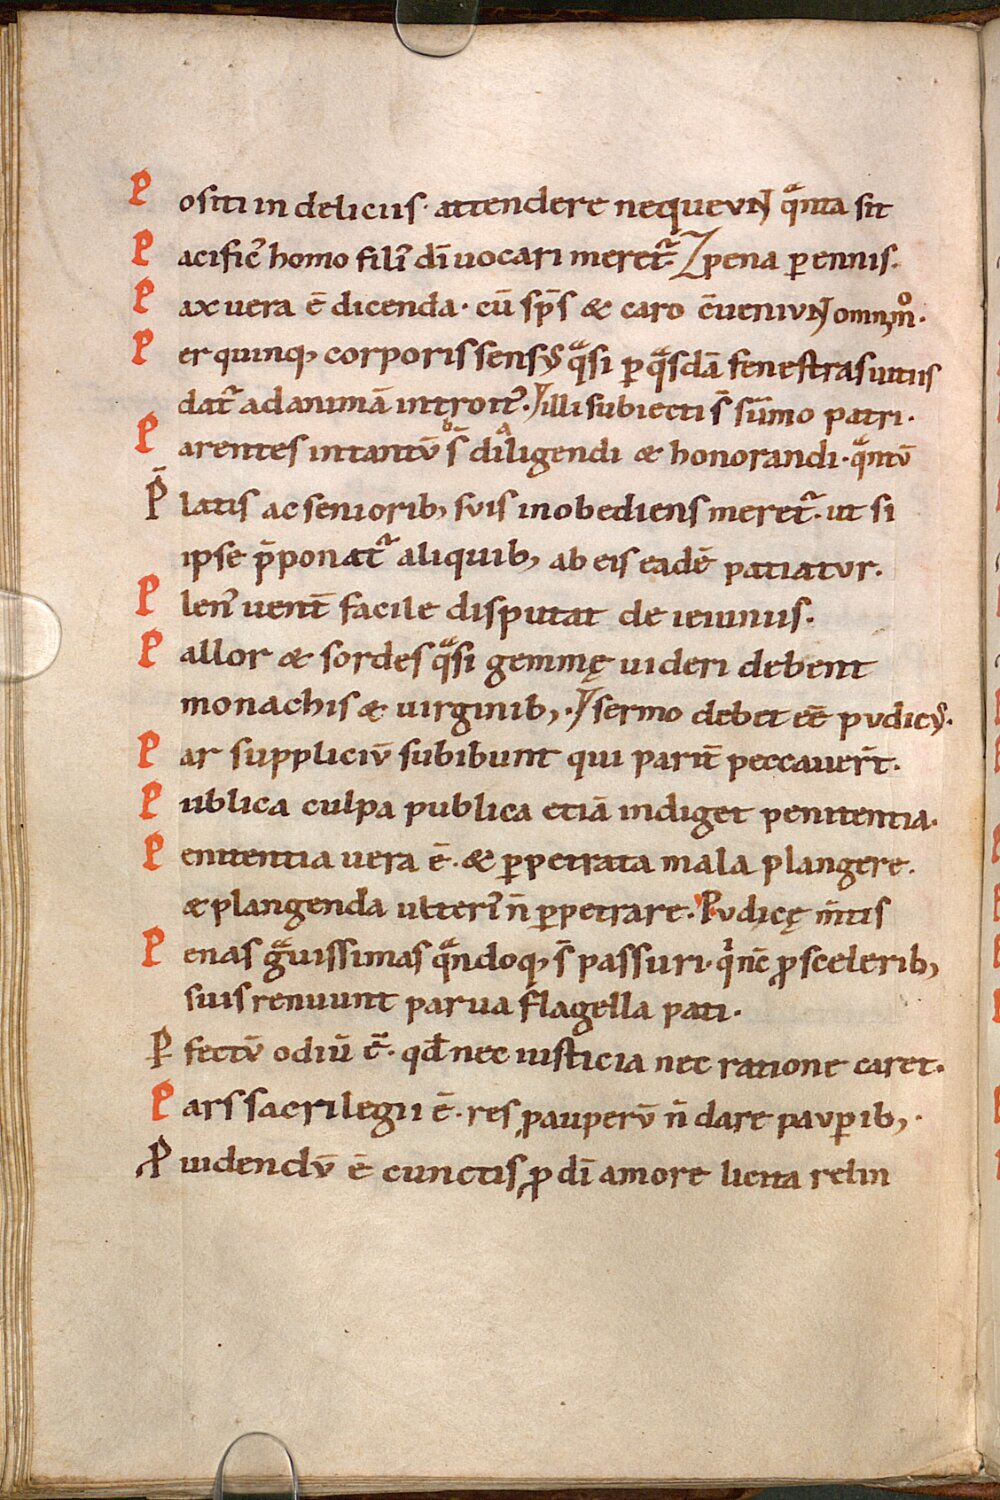 Positi in deliciis· attendere nequeuN qͣnta sit
Pacific᾿ homo fili᾿ dī uocari meret᷑· pena ꝑennis.
Pax uera ē dicenda· cū sp̄s & caro c̄ueniuN omnimͦ·
Per quinq; corporis sensꝰ qͣsi ꝑ qͣsdā fenestras uitiis
dat᷑ ad animā introit᾿· illi subiecti s̄ sūmo patri·
Parentes intantū s̄ diligendi & honorandi· qͣntū
P̄latis ac seniorib; suis inobediens meret᷑· ut si
ipse p̄ponat᷑ aliquib; ab eis eadē patiatur.
Plen᾿ uent̄ facile disputat de ieiuniis.
Pallor & sordes qͣsi gemmę uideri debent
monachis & uirginib;· sermo debet eē̄ pudicꝰ.
Par suppliciū subibunt qui parit̄ peccauer̄t.
Publica culpa publica etiā indiget penitentia.
Penitentia uera ē· & ꝑpetrata mala plangere.
& plangenda ulteri᾿ n̄ ꝑpetrare· Pudicę m̄tis
Penas gͣuissimas qͣndoq; s̄ passuri· qⁱ nc̄ ꝓ scelerib;
suis renuunt parua flagella pati.
Ꝑfectū odiū ē· qd̄ nec iusticia nec ratione caret.
Pars sacrilegii ē· res pauperū n̄ dare pauꝑib;.
Ꝓuidendū ē cunctis ꝓ dī amore licita relin